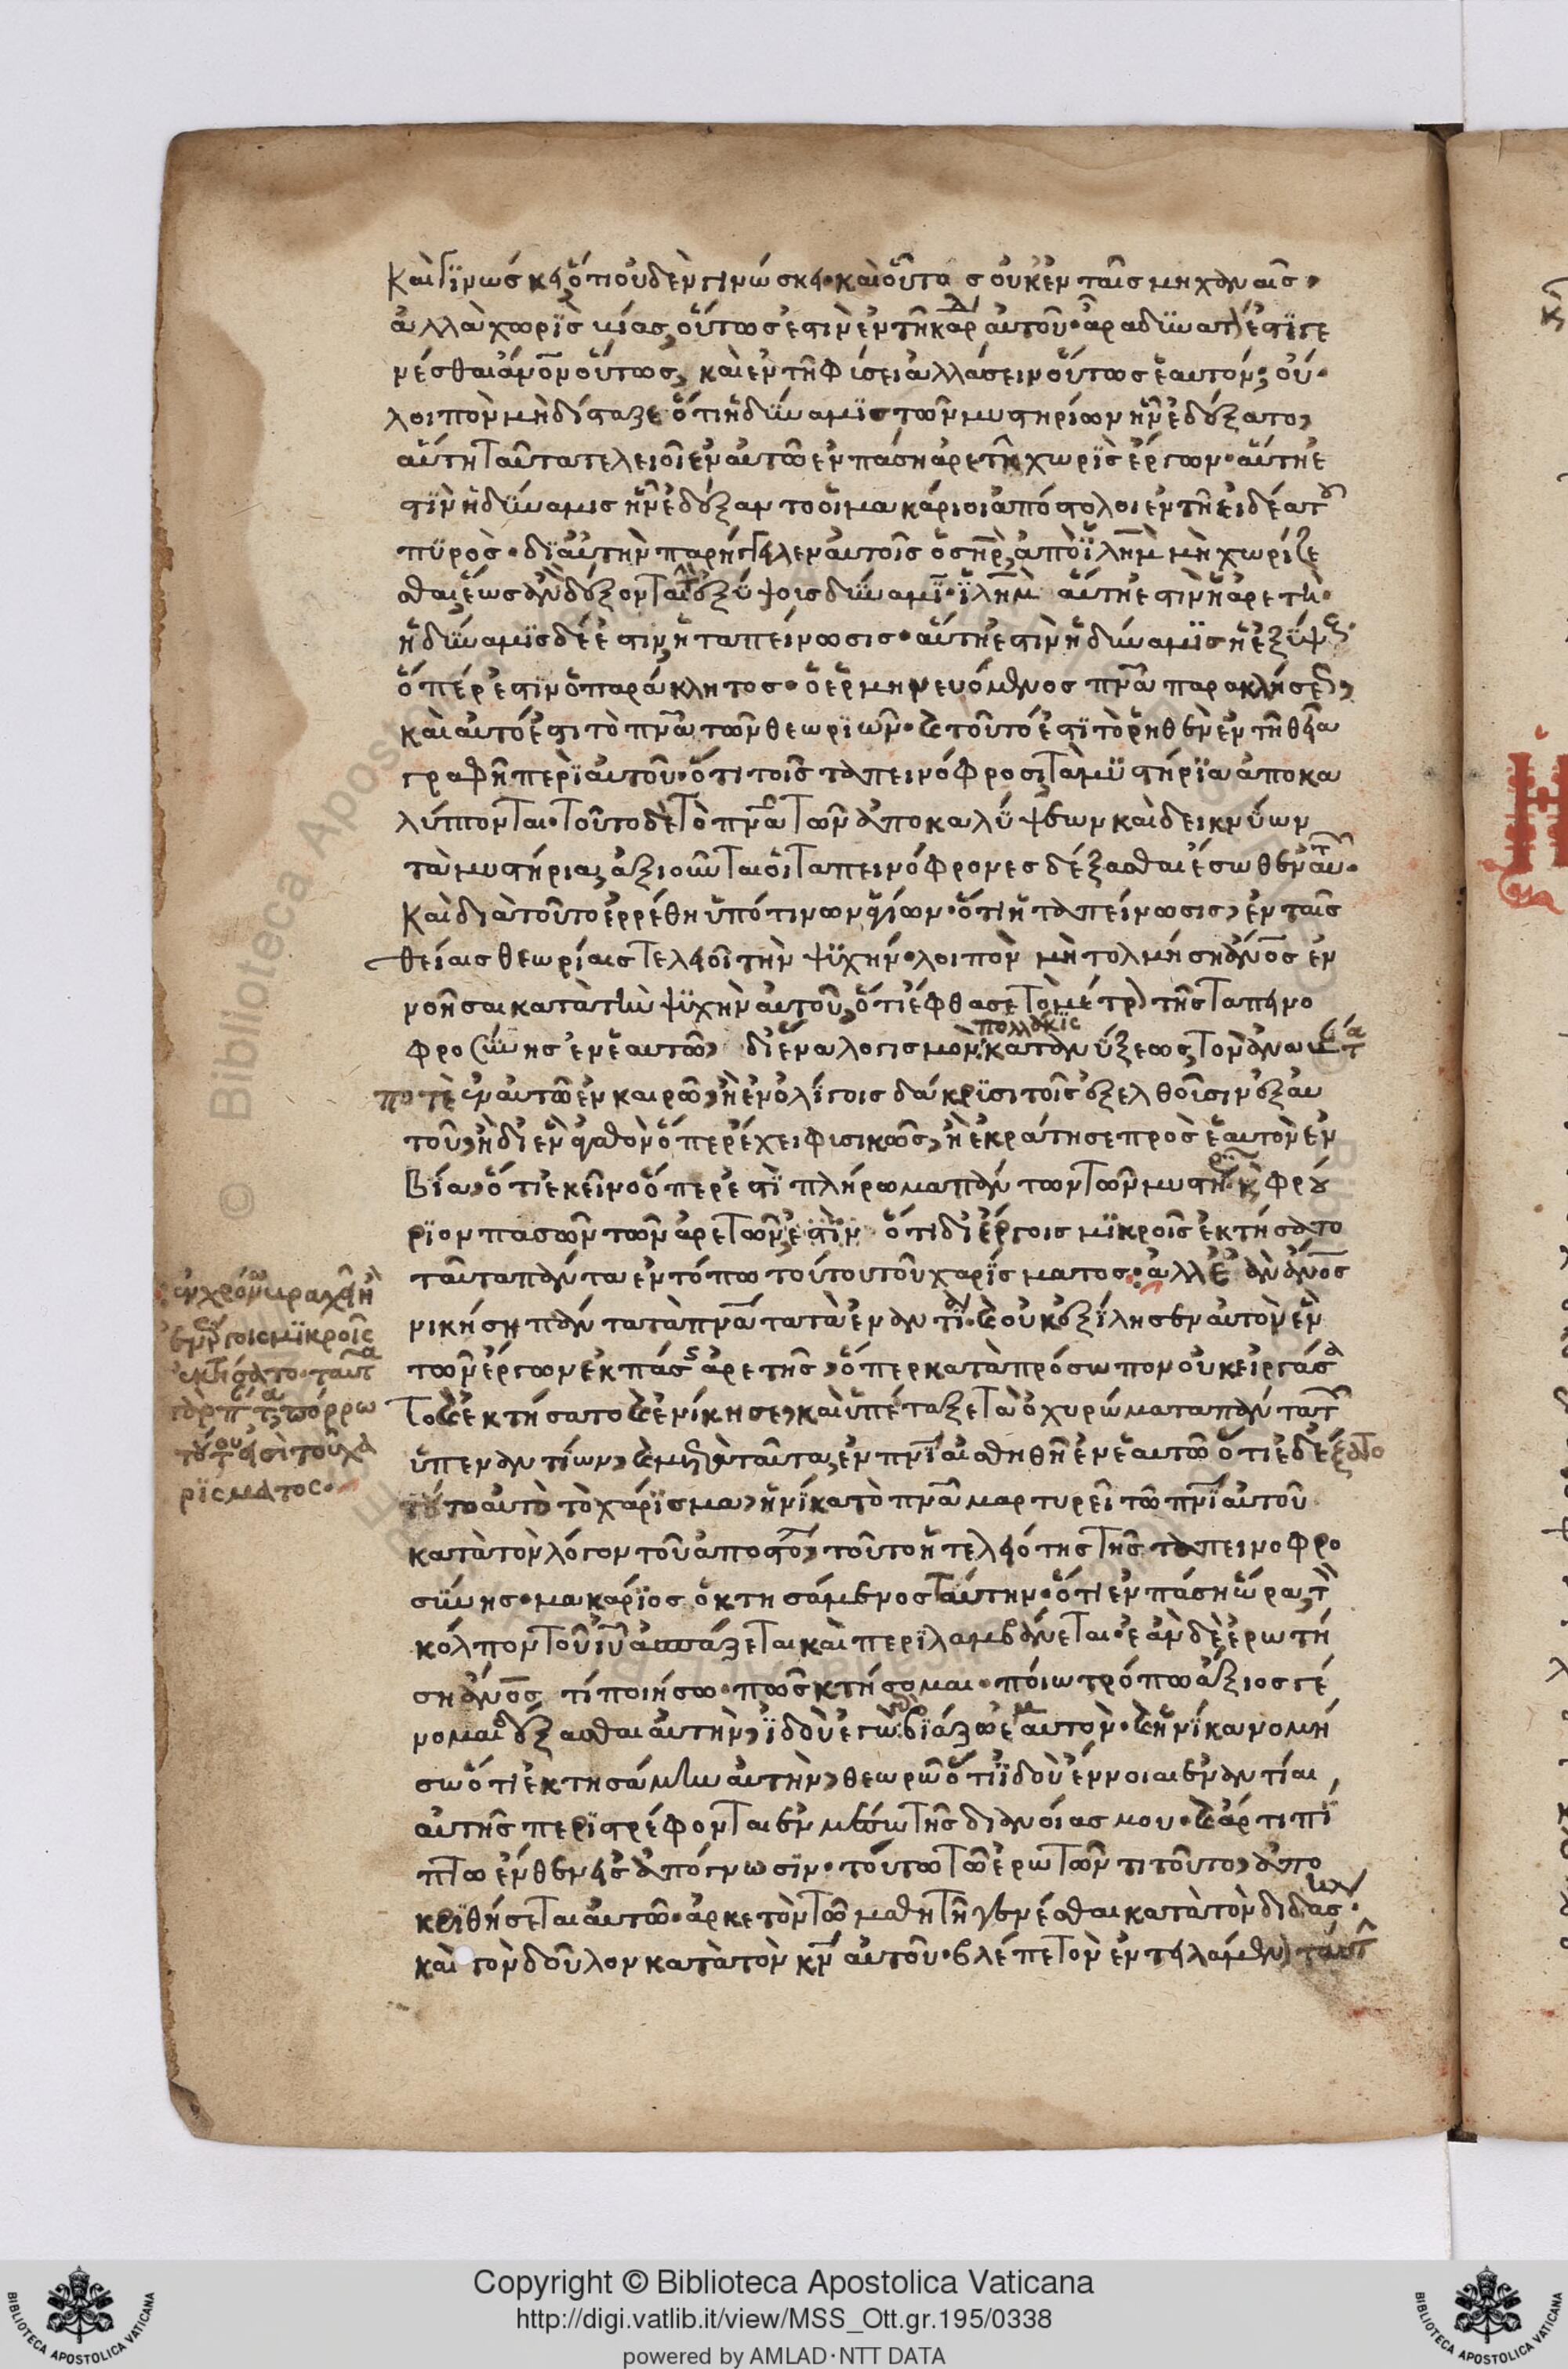 Καὶ γϊνωσκη ὅτι οὐδὲν γινώσκει· καὶ οὗτος οὐκ ἐν ταῖς μηχαναῖς,
ἀλλὰ χωρϊς μίας οὕτως ἐστὶν ἐν τῆ καρδ αὐτοῦ· ἆρα δϋνατ ἐστϊ γε
νέσθαι ἀνον οὕτως, καὶ ἐν τῆ φύσει ἀλλάσειν οὕτως ἑαυτόν; οὐ·
λοιπὸν μὴ δίσταζε ὅτι ἡ δϋναμϊς τῶν μυστηρίων ἣν ἐδέξατο,
αὕτη ταῦτα τελειοῖ ἐν αὐτῶ ἐν πάση ἀρετῆ χωρϊς ἔργων· αὕτη ἐ
στϊν ἡ δϋναμις ἣν ἐδέξαντο οἱ μακάριοι ἀπόστολοι ἐν τῆ εἰδέα τοῦ
πϋρός· δϊ αὐτὴν παρήγγειλεν αὐτοῖς ὁ σηρ, ἀπὸ ϊλημ μὴ χωρίζε
σθαι ἕως ἂν δέξονται ἐξ ὕψους δϋναμϊ· ϊλημ αὕτη ἐστὶν ἡ ἀρετή·
ἡ δϋναμϊς δέ ἐστιν ἡ ταπείνωσις· αὕτη ἐστὶν ἡ δύναμϊς ἡ ἐξ ϋψους·
ὅπέρ ἐστϊν ὁ παράκλητος· ὁ ἑρμηνευόμενος πνα παρακλήσεως,
καὶ αὐτό ἐστι τὸ πνα τῶν θεωριῶν· καὶ τοῦτό ἐστϊ τὸ ῥηθὲν ἐν τῆ θεία
γραφῆ περὶ αὐτοῦ· ὅτι τοῖς ταπεινόφροσι τὰ μϋστήρϊα ἀποκα
λύπτονται· τοῦτο δὲ τὸ πνα τῶν ἀποκαλϋψεων καὶ δεικνϋων
τὰ μυστήρια, ἀξιοῦνται οἱ ταπεινόφρονες δέξασθαι ἔσωθεν αὐτ·
Καὶ διὰ τοῦτο ἐρρέθη ὑπό τινων ἁγίων· ὅτι ἡ ταπείνωσις, ἐν ταῖς
θείαις θεωρίαις τελειοῖ τὴν ψϋχήν· λοιπὸν μὴ τολμήση ἀνος ἐν
νοῆσαι κατὰ τὴν ψϋχὴν αὐτοῦ, ὅτι ἔφθασε τὸ μέτρ τῆς ταπεινο
φροσϋνης ἐν ἑαυτῶ, δι ἕνα λογισμὸν πολλάκϊς κατανύξεως τὸν
ποτὲ ἐν αὐτῶ ἐν καιρῶ, ἢ ἐν ὀλίγοις δάκρϊσι τοῖς ἐξελθοῖσιν ἐξ αυ
τοῦ, ἢ δι ἓν ἀγαθὸν ὅπερ ἔχει φισικῶς, ἢ ἐκράτησε πρὸς ἑαυτὸν ἐν
βία, ὅτι ἐκεῖνο ὅπερ ἐστὶ πλήρωμα πάντων τῶν μυστηρίων κ φρού
ρϊον πασῶν τῶν ἀρετῶν ἐστϊν ὅτι δι ἔργοις μϊκροῖς ἐκτήσατο
ταῦτα πάντα ἐν τόπω τούτου τοῦ χαρίσματος· ἀλλ ἐὰν ἀνος
νικήση πάντα τὰ πνατα τὰ ἐναντί· καὶ οὐκ ἐξίλησεν αὐτὸν ἓν
τῶν ἔργων ἐκ πάς ἀρετῆς, ὅπερ κατὰ πρόσωπον οὐκ εἰργάσα
το καὶ ἐκτήσατο καὶ ἐνίκησε, καὶ ὑπέταξε τὰ ὀχυρώματα πάντα τ
ὑπεναντίων, καὶ μετὰ ταῦτα, ἐν πνϊ αἰσθηθῆ ἐν ἑαυτῶ ὅτι ἐδέξατο
τοῦτο αὐτὸ τὸ χάρϊσμα, ἡνίκα τὸ πνα μαρτυρεῖ τῶ πνϊ αὐτοῦ
κατὰ τὸν λόγον τοῦ ἀποστο, τοῦτο ἡ τελειότης τῆς ταπεινοφρο
σϋνης· μακάρϊος ὁ κτησάμενος ταύτην· ὅτι ἐν πάση ὥρα, τὸν
κόλπον τοῦ ιυ ἀσπάζεται καὶ περϊλαμβάνεται· ἐὰν δὲ ἐρωτή
ση ἀνος τί ποιήσω· πῶς κτήσομαι· ποίω τρόπω ἄξιος γέ
νομαι δέξασθαι αὐτὴν, ϊδοὺ ἐγὼ βϊάζω ἐμαυτὸν· καὶ ἡνίκα νομή
σω ὅτι ἐκτησάμην αὐτὴν, θεωρῶ ὅτι ϊδοὺ ἔννοιαι ἐναντίαι
αὐτῆς περϊστρέφονται ἐν μέσω τῆς διανοίας μου· καὶ ἄρτι πί
πτω ἔνθεν εἰς ἀπόγνωσϊν· τούτω τῶ ἐρωτῶντι τοῦτο, ἀπο
κρϊθήσεται αὐτῶ· ἀρκετὸν τῶ μαθητῆ γενέσθαι κατὰ τὸν διδας·
καὶ τὸν δοῦλον κατὰ τὸν κν αὐτοῦ· βλέπε τὸν ἐντειλάμενον ταύτ
ἐν ἔργοις μϊκροῖς
ἐκτήσατο· ταῦτ
πόρρω
τοῦ χα
ρϊσματος·
© Biblioteca Apostolica Vaticana
Copyright © Biblioteca Apostolica Vaticana
http://digi.vatlib.it/view/MSS_Ott.gr.195/0338
powered by AMLAD·NTT DATA
BIBLIOTECA APOSTOLICA VATICANA
BIBLIOTECA APOSTOLICA VATICANA